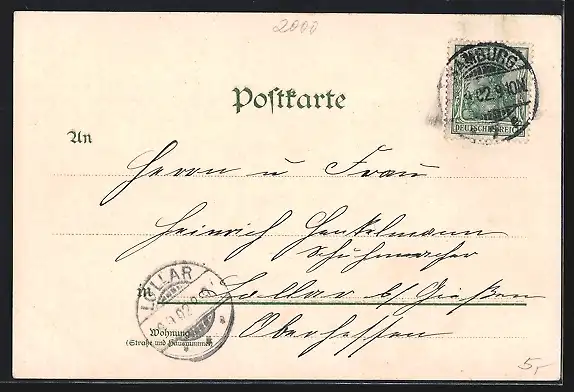 2000
HAMBURG
02. 9-10 N.
DEUTSCHES REICH
Postkarte
An
Herrn u Frau
Heinrich Henkelmann
Schuhmacher
in Lollar b/ Gießen
Oberhessen
LOLLAR
Wohnung
(Straße und Hausnummer)
5,-